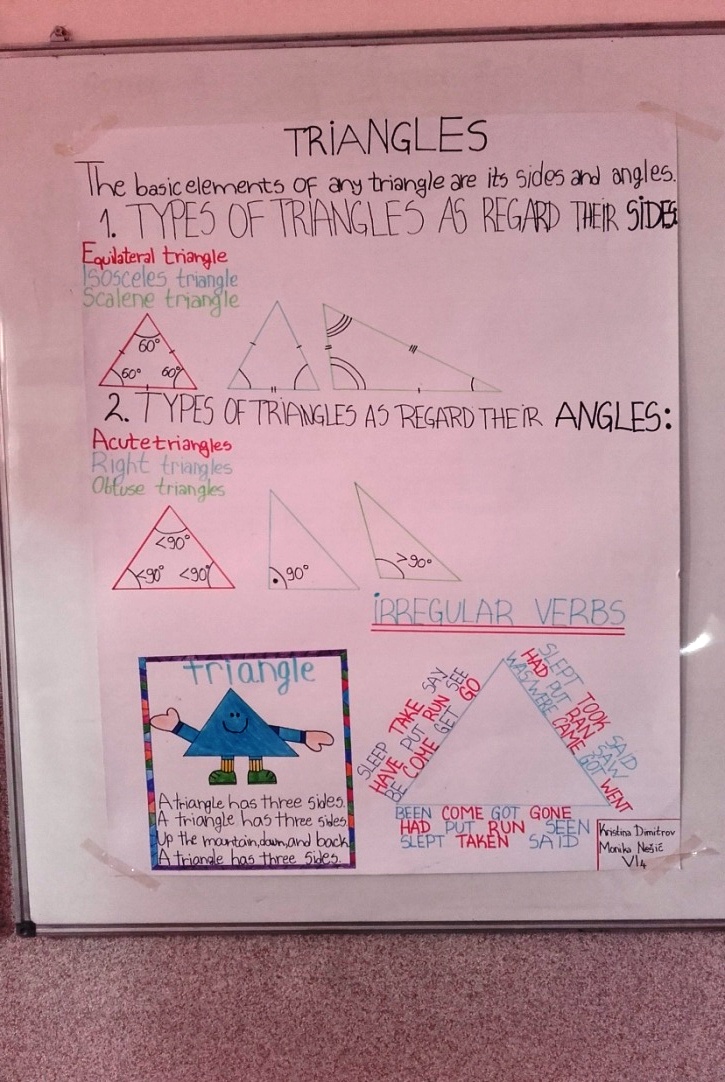 TRIANGLES
The basic elements of any triangle are its sides and angles.
1. TYPES OF TRIANGLES AS REGARD THEIR SIDES:
Equilateral triangle
Isosceles triangle
Scalene triangle
60°
60° 60°
2. TYPES OF TRIANGLES AS REGARD THEIR ANGLES:
Acute triangles
Right triangles
Obtuse triangles
<90°
<90° <90°
90°
>90°
IRREGULAR VERBS
triangle
A triangle has three sides.
A triangle has three sides.
Up the mountain, down, and back
A triangle has three sides.
SLEEP TAKE SAY
HAVE PUT RUN SEE
BE COME GET GO
SLEPT TOOK SAID
HAD PUT RAN SAW
WAS/WERE CAME GOT WENT
BEEN COME GOT GONE
HAD PUT RUN SEEN
SLEPT TAKEN SAID
Kristina Dimitrov
Monika Nešić
VI4